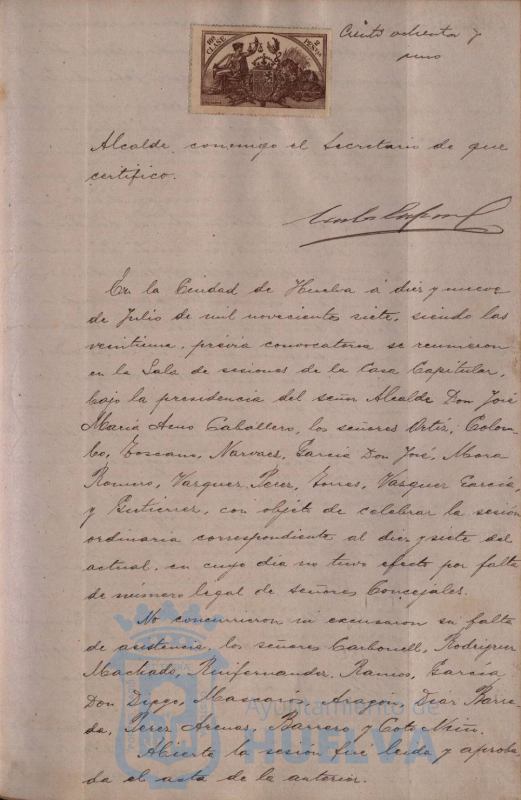 Ciento ochenta y
uno
10ª CLASE 2 PESETAS
Alcalde, conmigo el Secretario de que
certifico.
En la Ciudad de Huelva á diez y nueve
de Julio de mil novecientos siete, siendo las
veintiuna, prévia convocatoria se reunieron
en la Sala de sesiones de la Casa Capitular,
bajo la presidencia del señor Alcalde Don José
María Caballero, los señores Ortiz, Colom-
bo, Toscano, Narvaez, García Don José, Mora
Romero, Vazquez Perez, Torres, Vazquez García,
y Gutierrez, con objeto de celebrar la sesión
ordinaria correspondiente al diez y siete del
actual, en cuyo dia no tuvo efecto por falta
de número legal de señores Concejales.
No concurrieron ni excusaron su falta
de asistencia, los señores Carbonell, Rodriguez
Machado, Ruifernandez, Ramos, García
Don Diego, Mascarós, Aragón, Diaz Barre-
da, Perez Arenas, Barrero y Coto
Abierta la sesión fué leida y aproba-
da el acta de la anterior.
Ayuntamiento de
HUELVA